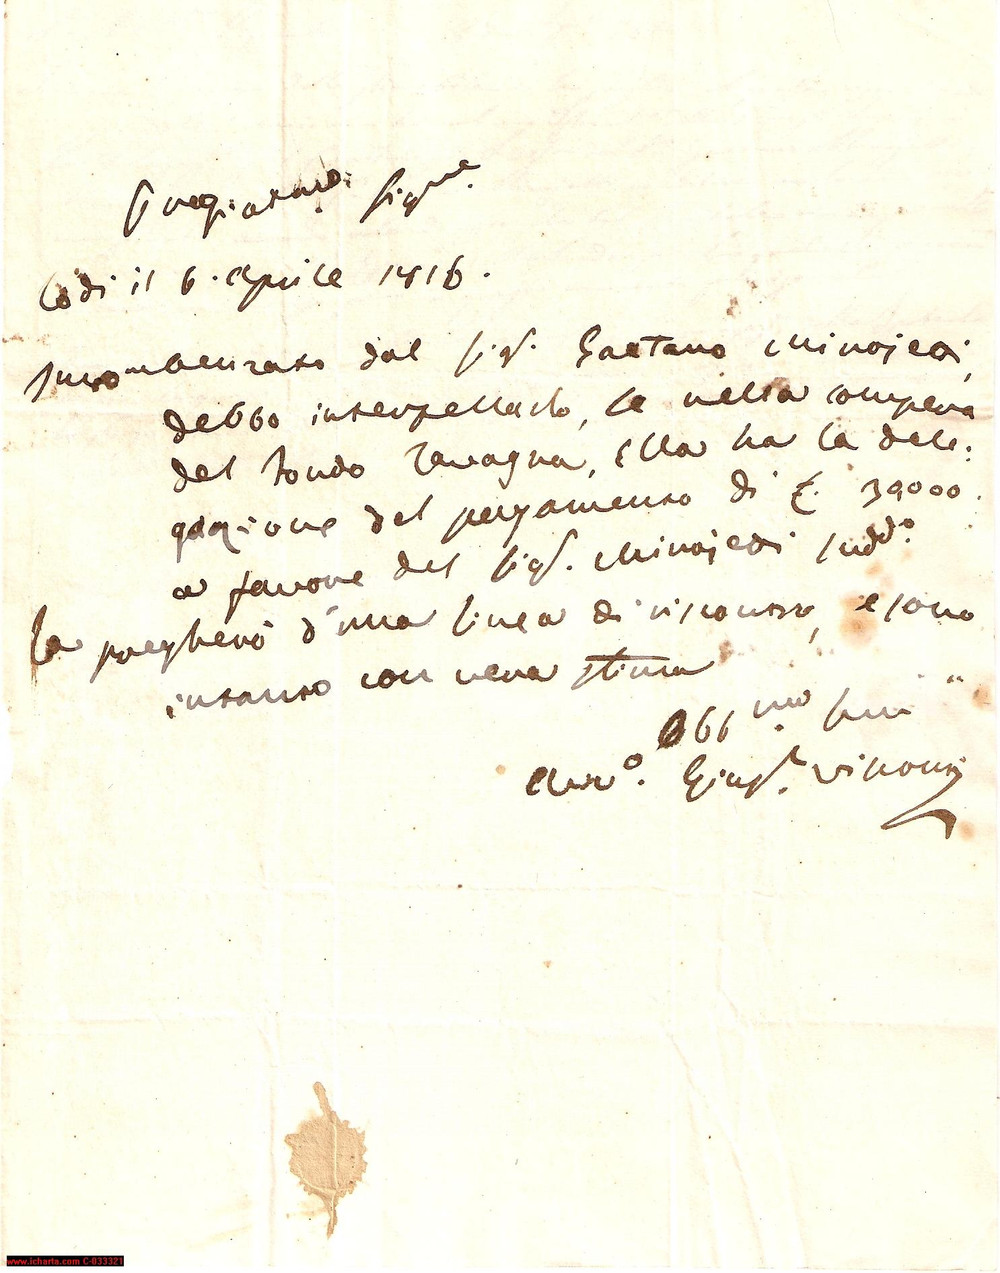 Pregiatmo. Sigre.
Lodi il 6. Aprile 1816.
Incombenzato dal Sigr. Gaetano Minojesi,
debbo interpellarlo, se nella compera
del fondo Tavagna, Ella ha la dele:
gazione del pagamento di £. 39000.
a favore del Sigr. Minojesi Sudd.o
La pregherò d'una linea di riscontro, e sono
intanto con vera stima
Obb.mo
Avv.o. Visconti
www.icharta.com C-033321